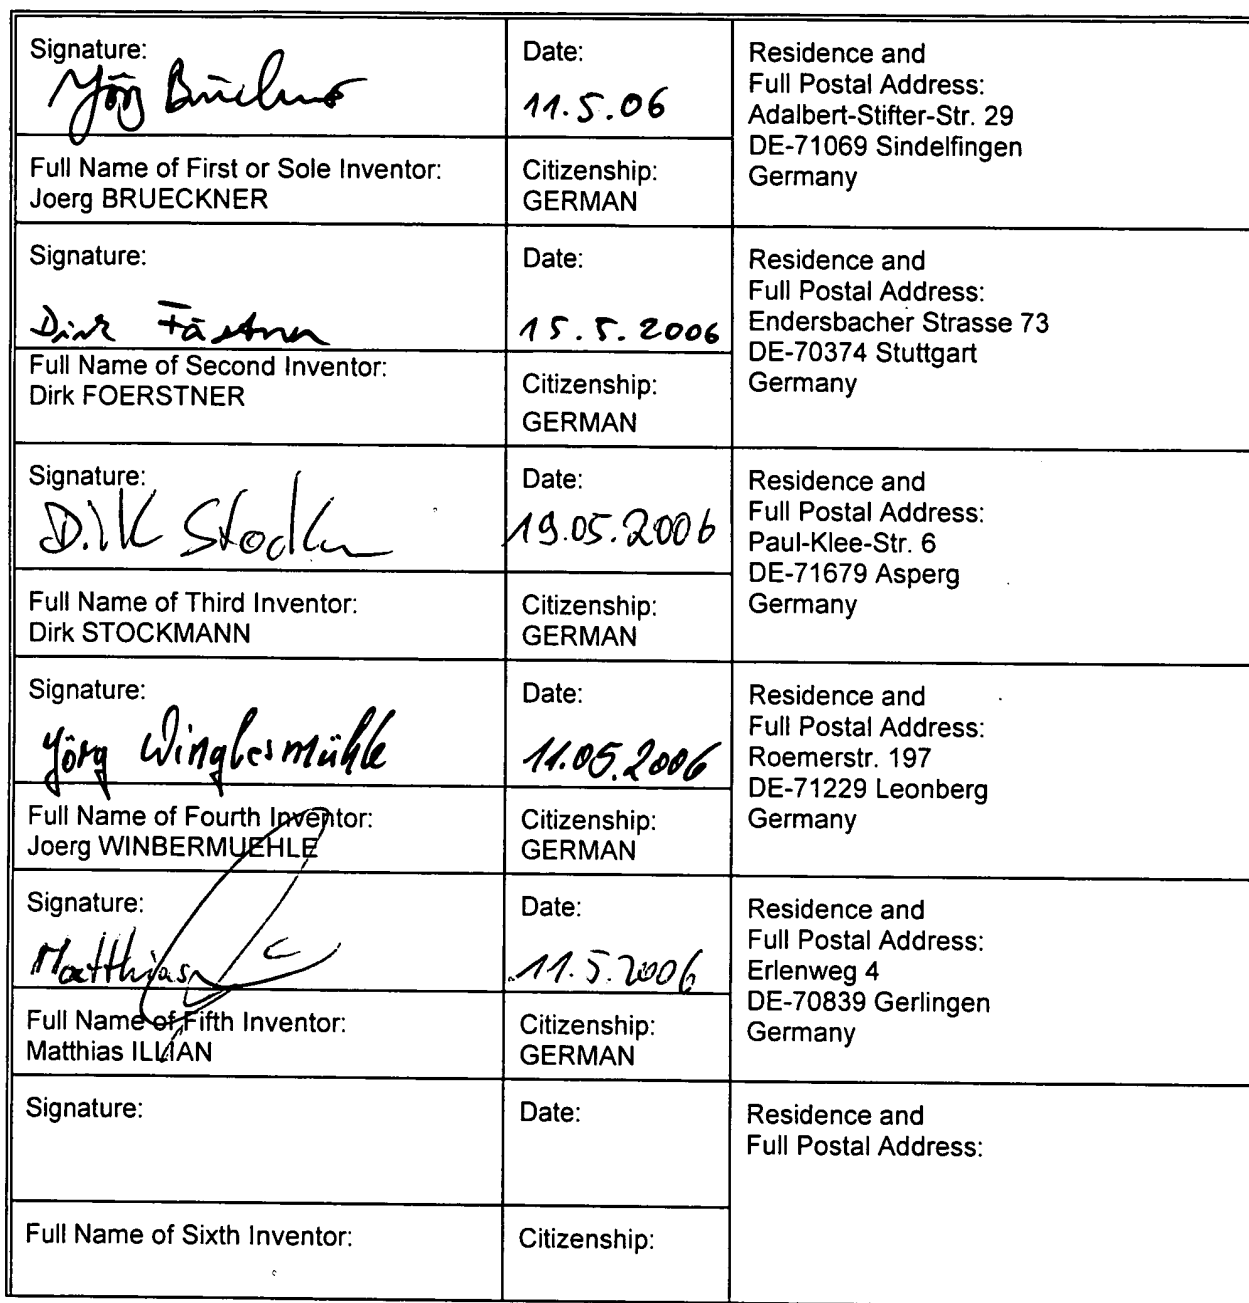 Signature:
Jörg Brückner
Date:
11.5.06
Residence and
Full Postal Address:
Adalbert-Stifter-Str. 29
DE-71069 Sindelfingen
Germany
Full Name of First or Sole Inventor:
Joerg BRUECKNER
Citizenship:
GERMAN
Signature:
Dirk Förstner
Date:
15.5.2006
Residence and
Full Postal Address:
Endersbacher Strasse 73
DE-70374 Stuttgart
Germany
Full Name of Second Inventor:
Dirk FOERSTNER
Citizenship:
GERMAN
Signature:
Dirk
Date:
19.05.2006
Residence and
Full Postal Address:
Paul-Klee-Str. 6
DE-71679 Asperg
Germany
Full Name of Third Inventor:
Dirk STOCKMANN
Citizenship:
GERMAN
Signature:
Jörg Winbermühle
Date:
11.05.2006
Residence and
Full Postal Address:
Roemerstr. 197
DE-71229 Leonberg
Germany
Full Name of Fourth Inventor:
Joerg WINBERMUEHLE
Citizenship:
GERMAN
Signature:
Matthias
Date:
11.5.2006
Residence and
Full Postal Address:
Erlenweg 4
DE-70839 Gerlingen
Germany
Full Name of Fifth Inventor:
Matthias ILLIAN
Citizenship:
GERMAN
Signature:
Date:
Residence and
Full Postal Address:
Full Name of Sixth Inventor:
Citizenship: